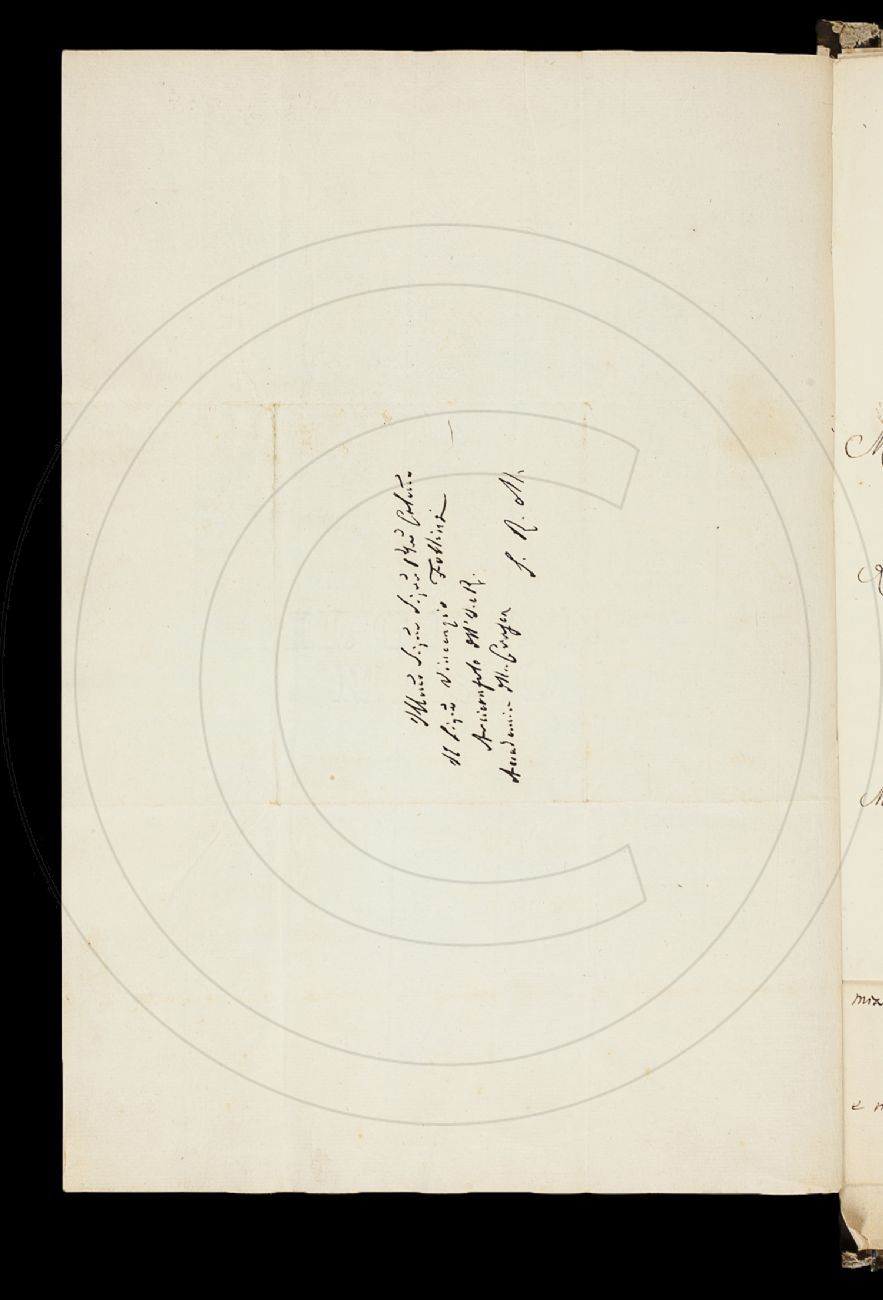 Illmo Sigre Sigre Prne Colmo
Il Sigre Vincenzio Follini
Arciconsolo dell' I. e R.
Accademia della Crusca
S. R. M.
mia
e